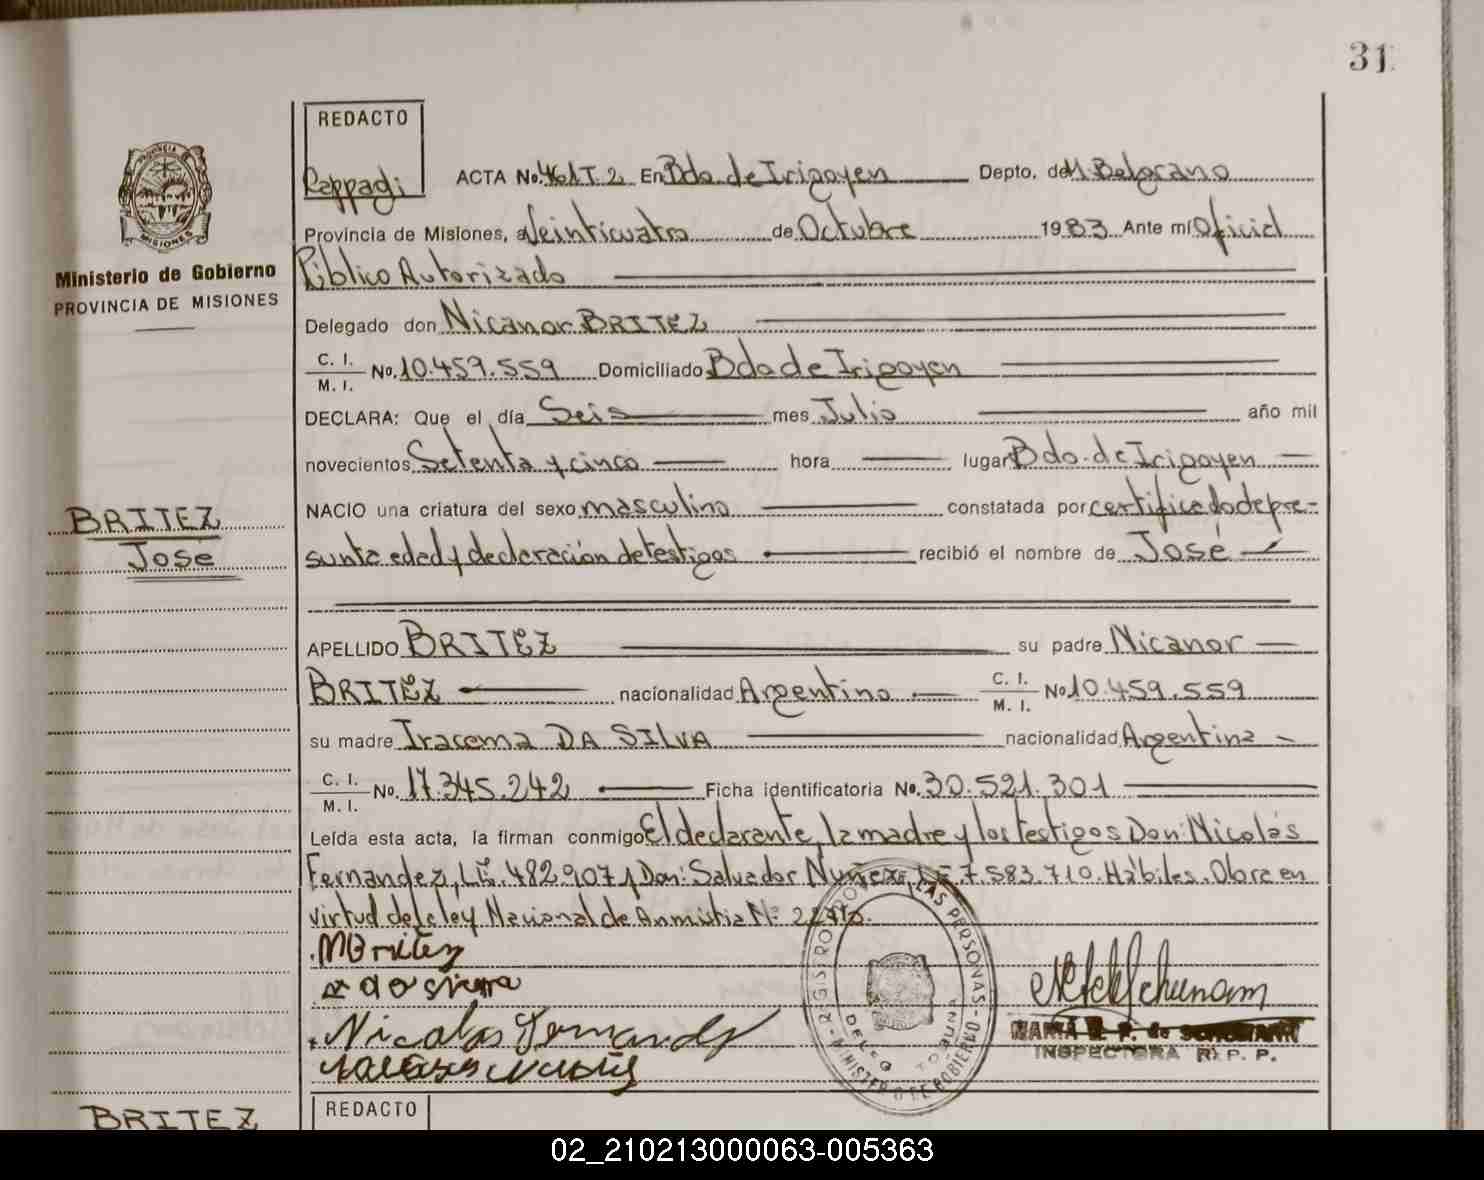 31
REDACTO
Rappagi
PROVINCIA
MISIONES
Ministerio de Gobierno
PROVINCIA DE MISIONES
ACTA No. 461 T.2 En Bdo. de Irigoyen Depto. de M. Belgrano
Provincia de Misiones, a Veinticuatro de Octubre 1983 Ante mí Oficial
Público Autorizado
Delegado don Nicanor BRITEZ
C. I.
M. I. No. 10.459.559 Domiciliado Bdo de Irigoyen
DECLARA: Que el día Seis mes Julio año mil
novecientos Setenta y cinco hora lugar Bdo. de Irigoyen
NACIO una criatura del sexo masculino constatada por certificado de pre-
sunta edad y declaración de testigos recibió el nombre de José
BRITEZ
José
APELLIDO BRITEZ su padre Nicanor
BRITEZ nacionalidad Argentino C. I.
M. I. No 10.459.559
su madre Iracema DA SILVA nacionalidad Argentina
C. I.
M. I. No. 17.345.242 Ficha identificatoria No. 30.521.301
Leída esta acta, la firman conmigo El declarante, la madre y los testigos Don: Nicolás
Fernandez, L.E. 482.907 y Don: Salvador Nuñez L.E 7.583.710. Hábiles. Obra en
virtud de la ley Nacional de Amnistia Nº
NBritez
Nicolas Fernandez
REGISTRO PROV. LAS PERSONAS
MINISTERIO DE GOBIERNO
MARIA E. P. de SCHUMANN
INSPECTORA R. P. P.
REDACTO
BRITEZ
02_210213000063-005363